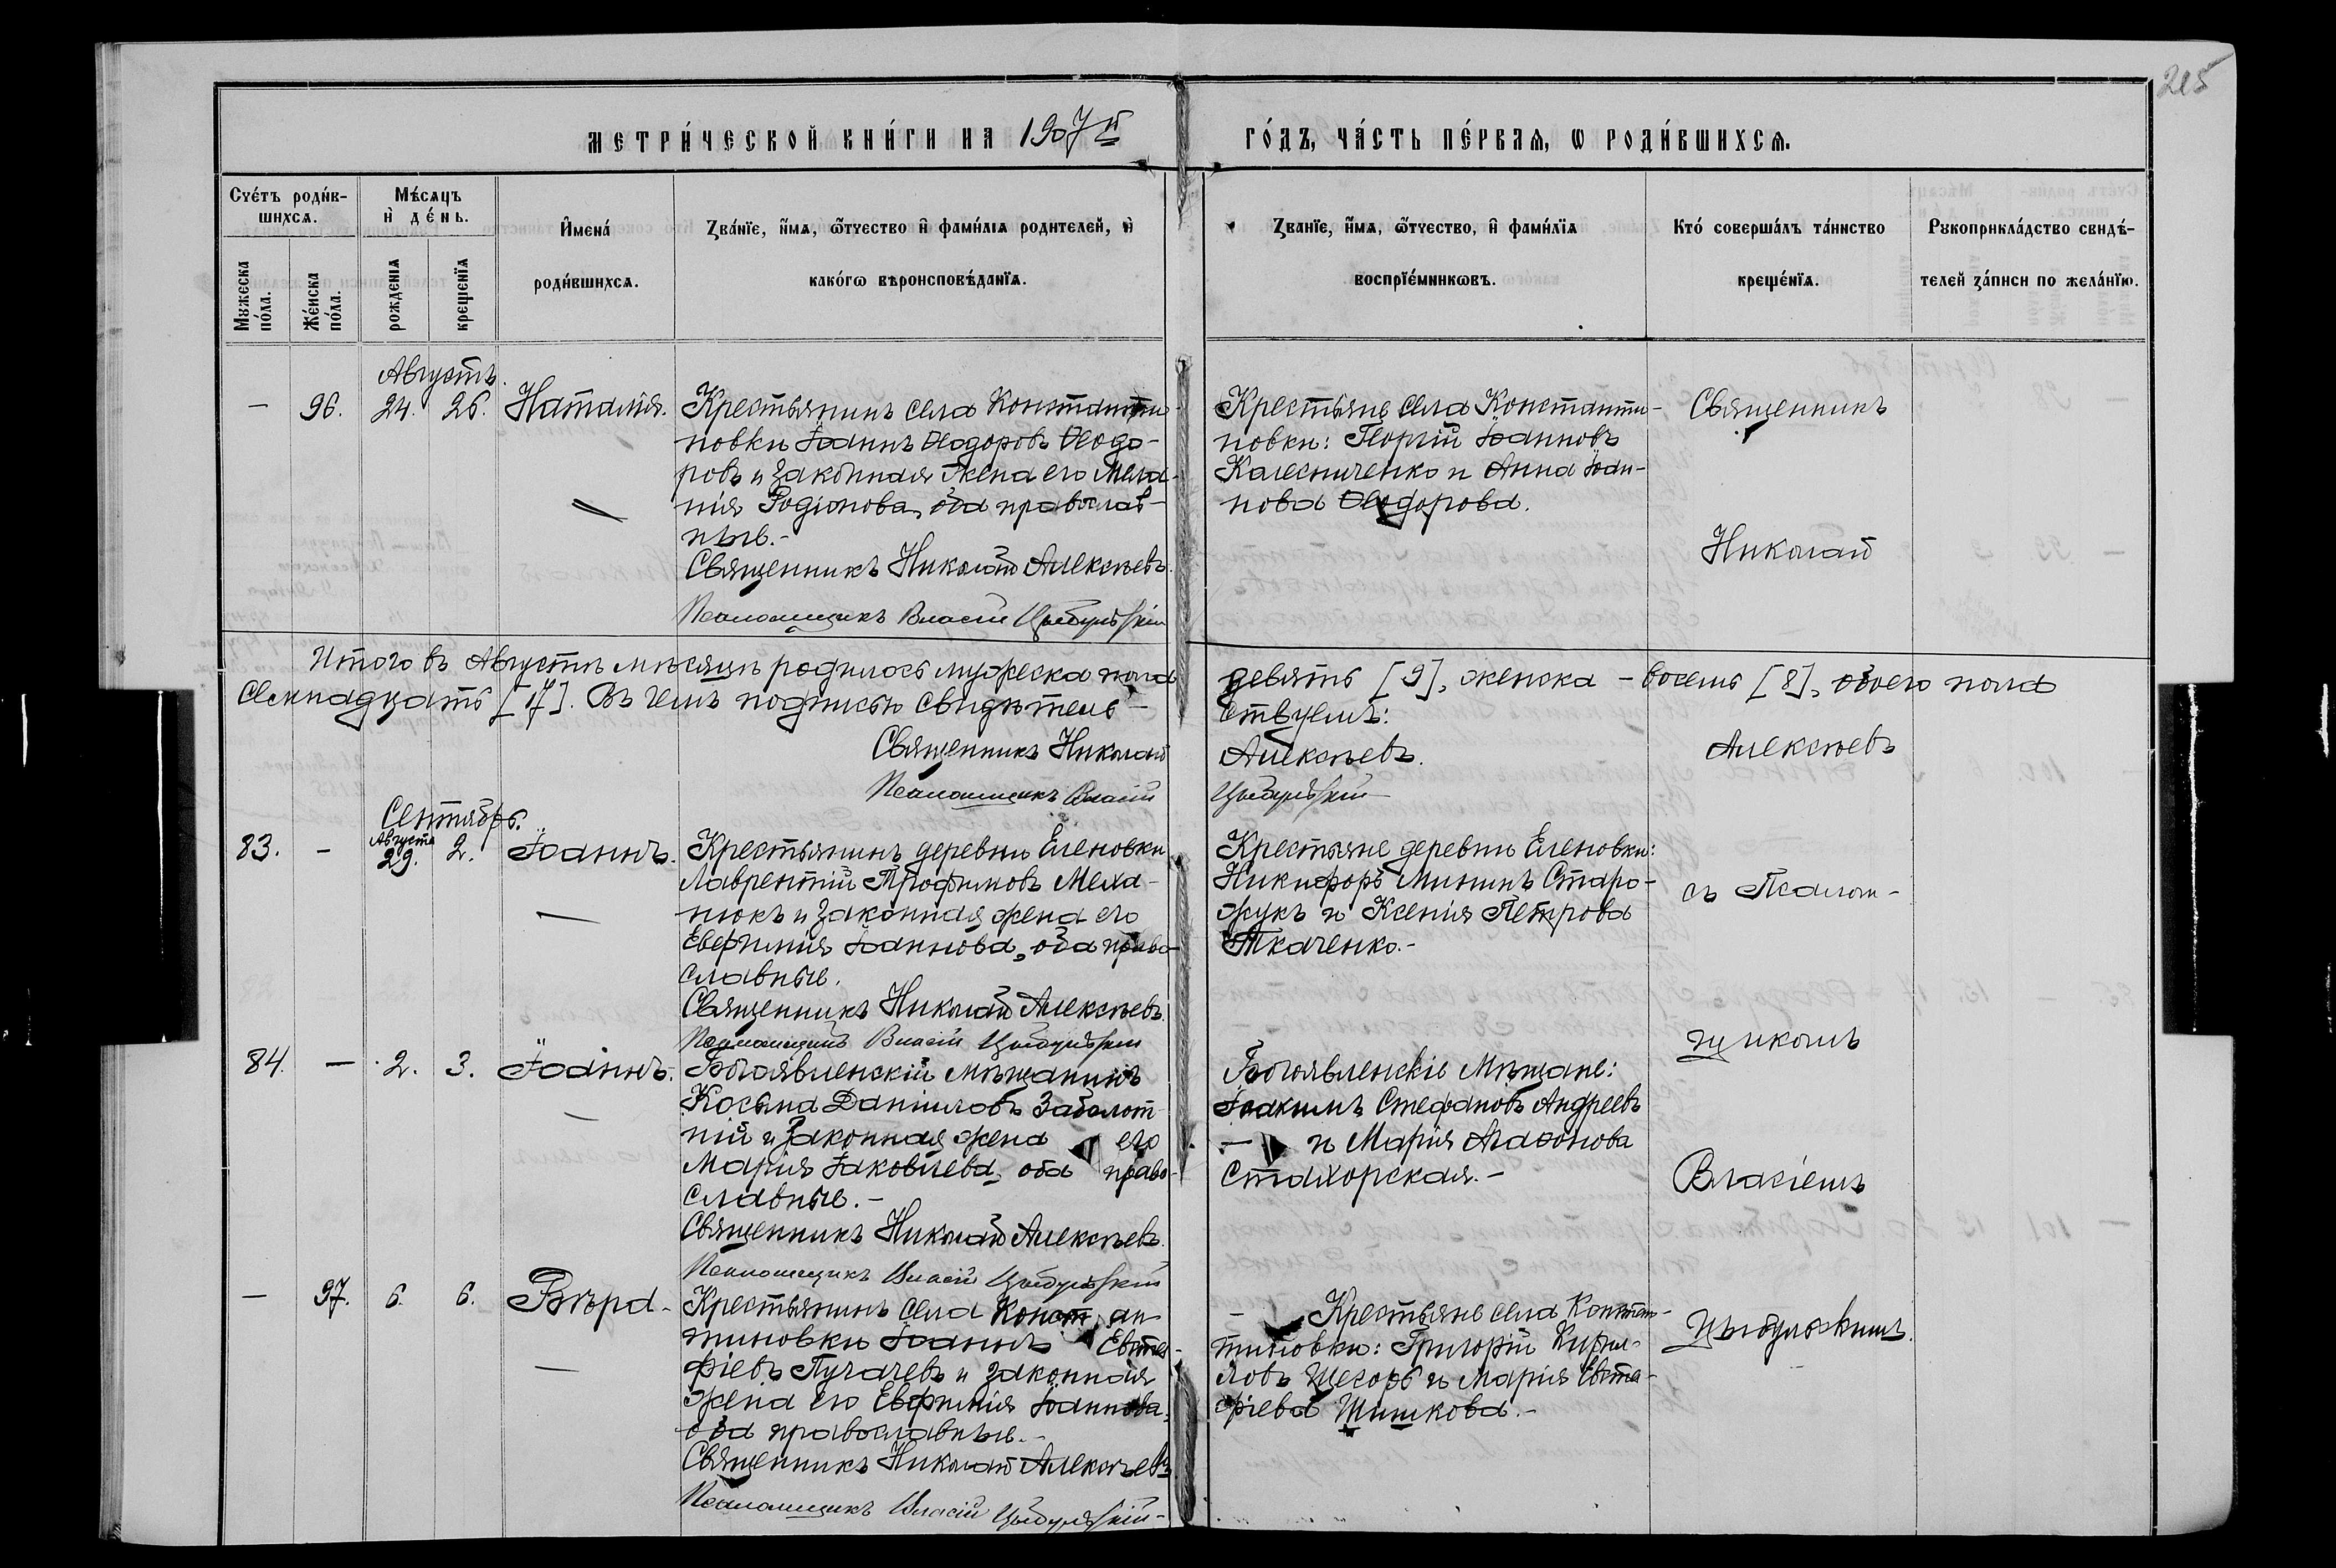 215
МЕТРИ́ЧЕСКОЙ КНИ́ГИ НА 1907й ГО́ДЪ, ЧА́СТЬ ПЕ́РВАѦ, Ѡ РОДИ́ВШИХСѦ.
Сче́тъ роди́в-
шихсѧ.
Мꙋжеска по́ла.
Же́нска по́ла.
Мѣ́сѧцъ
и҆ де́нь.
рожденїѧ
крещенїѧ
И҆мена́
роди́вшихсѧ.
Зва́нїе, и҆́мѧ, ѻ҆́тчество и҆ фами́лїѧ родителей, и҆
како́гѡ вѣроисповѣ́данїѧ.
Зва́нїе, и҆́мѧ, ѻ҆́тчество, и҆ фами́лїѧ
воспрїе́мникѡвъ.
Кто́ соверша́лъ та́инство
креще́нїѧ.
Рꙋкоприкла́дство свидѣ́-
телей за́писи по жела́нїю.
Августъ.
— 96. 24. 26. Наталія.
Крестьянинъ села Константи-
новки Іоаннъ Ѳеодоровъ Ѳеодо-
ровъ и законная жена его Мела-
нія Родіонова, оба православ-
ные.-
Священникъ Николай Алексѣевъ.
Псаломщикъ Власій Цыбульскій
Крестьяне села Константи-
новки: Георгій Іоанновъ
Калесниченко и Анна Іоан-
нова Ѳеодорова.
Священникъ
Николай
Алексѣевъ
съ Псалом-
щикомъ
Власіемъ
Цыбульскимъ.
Итого въ Августѣ мѣсяцѣ родилось мужеска пола девять [9], женска – восемь [8], обоего пола
семнадцать [17]. Въ чемъ подписью свидѣтель-ствуемъ:
Священникъ Николай Алексѣевъ.
Псаломщикъ Власій Цыбульскій
Сентябрь.
83. – Августа 29. 2. Іоаннъ.
Крестьянинъ деревни Еленовки
Лаврентій Трофимовъ Меха-
нюкъ и законная жена его
Евфимія Іоаннова, оба право-
славные.
Священникъ Николай Алексѣевъ.
Псаломщикъ Власій Цыбульскій
Крестьяне деревни Еленовки:
Никифоръ Мининъ Старо-
жукъ и Ксенія Петрова
Ткаченко.-
84. — 2. 3. Іоаннъ.
Богоявленскій Мѣщанинъ
Косьма Даніиловъ Заболот-
ній и законная жена его
Марія Іаковлева, оба право-
славные.-
Священникъ Николай Алексѣевъ.
Псаломщикъ Власій Цыбульскій
Богоявленскіе Мѣщане:
Іоакимъ Стефановъ Андреевъ
— и Марія Агаѳонова
Стахорская.-
— 97. 6. 6. Вѣра
Крестьянинъ села Констан-
тиновки Іоаннъ Евста-
фіевъ Пугачевъ и законная
жена его Евфимія Іоаннова,
оба православные.-
Священникъ Николай Алексѣевъ
Псаломщикъ Власій Цыбульскій-
– Крестьяне села Констан-
тиновки: Григорій Кирил-
ловъ и Марія Евста-
фіева Шишкова.-